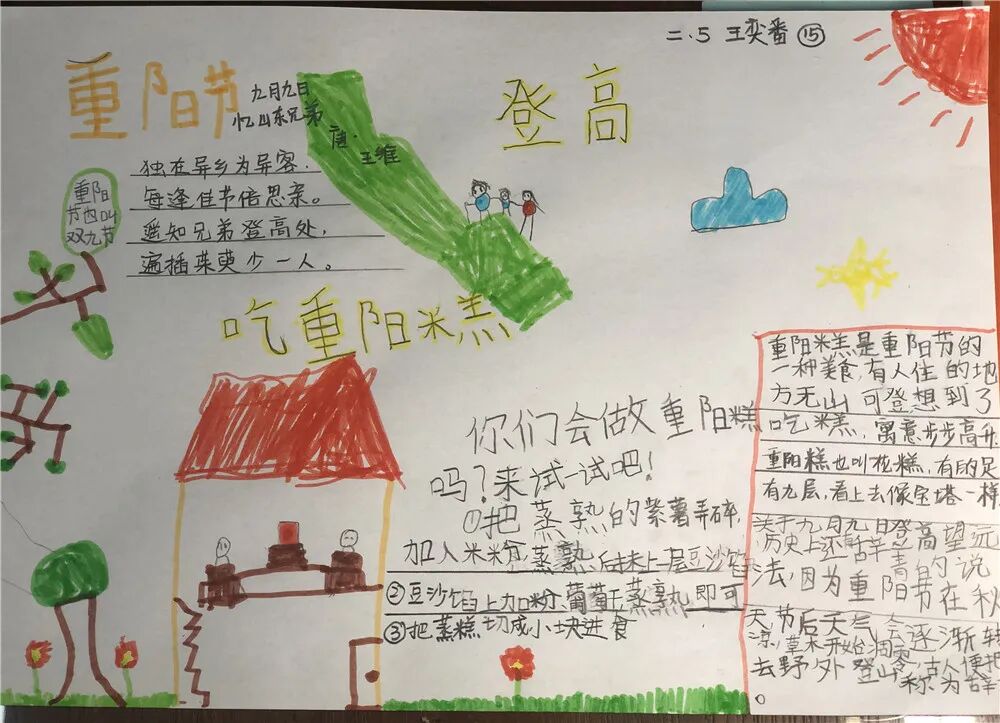 二.5 王奕番 ⑮
重阳节
九月九日
忆山东兄弟
唐.
王维
独在异乡为异客.
每逢佳节倍思亲。
遥知兄弟登高处,
遍插茱萸少一人。
重阳
节也叫
双九节
登高
吃重阳米糕
你们会做重阳糕
吗?来试一试吧!
①把蒸熟的紫薯弄碎,
加入米粉,蒸熟,后抹上一层豆沙馅
②豆沙馅上加粉、葡萄干蒸熟即可
③把蒸糕切成小块进食
重阳糕是重阳节的
一种美食,有人住的地
方无山可登想到了
吃糕,寓意步步高升
重阳糕也叫花糕,有的足
有九层,看上去像宝塔一样
关于九月九日登高望远
历史上还有辞青的说
法,因为重阳节在秋
天,节后天气会逐渐转
凉,草木开始凋零,古人便把
去野外登山 称为辞
。